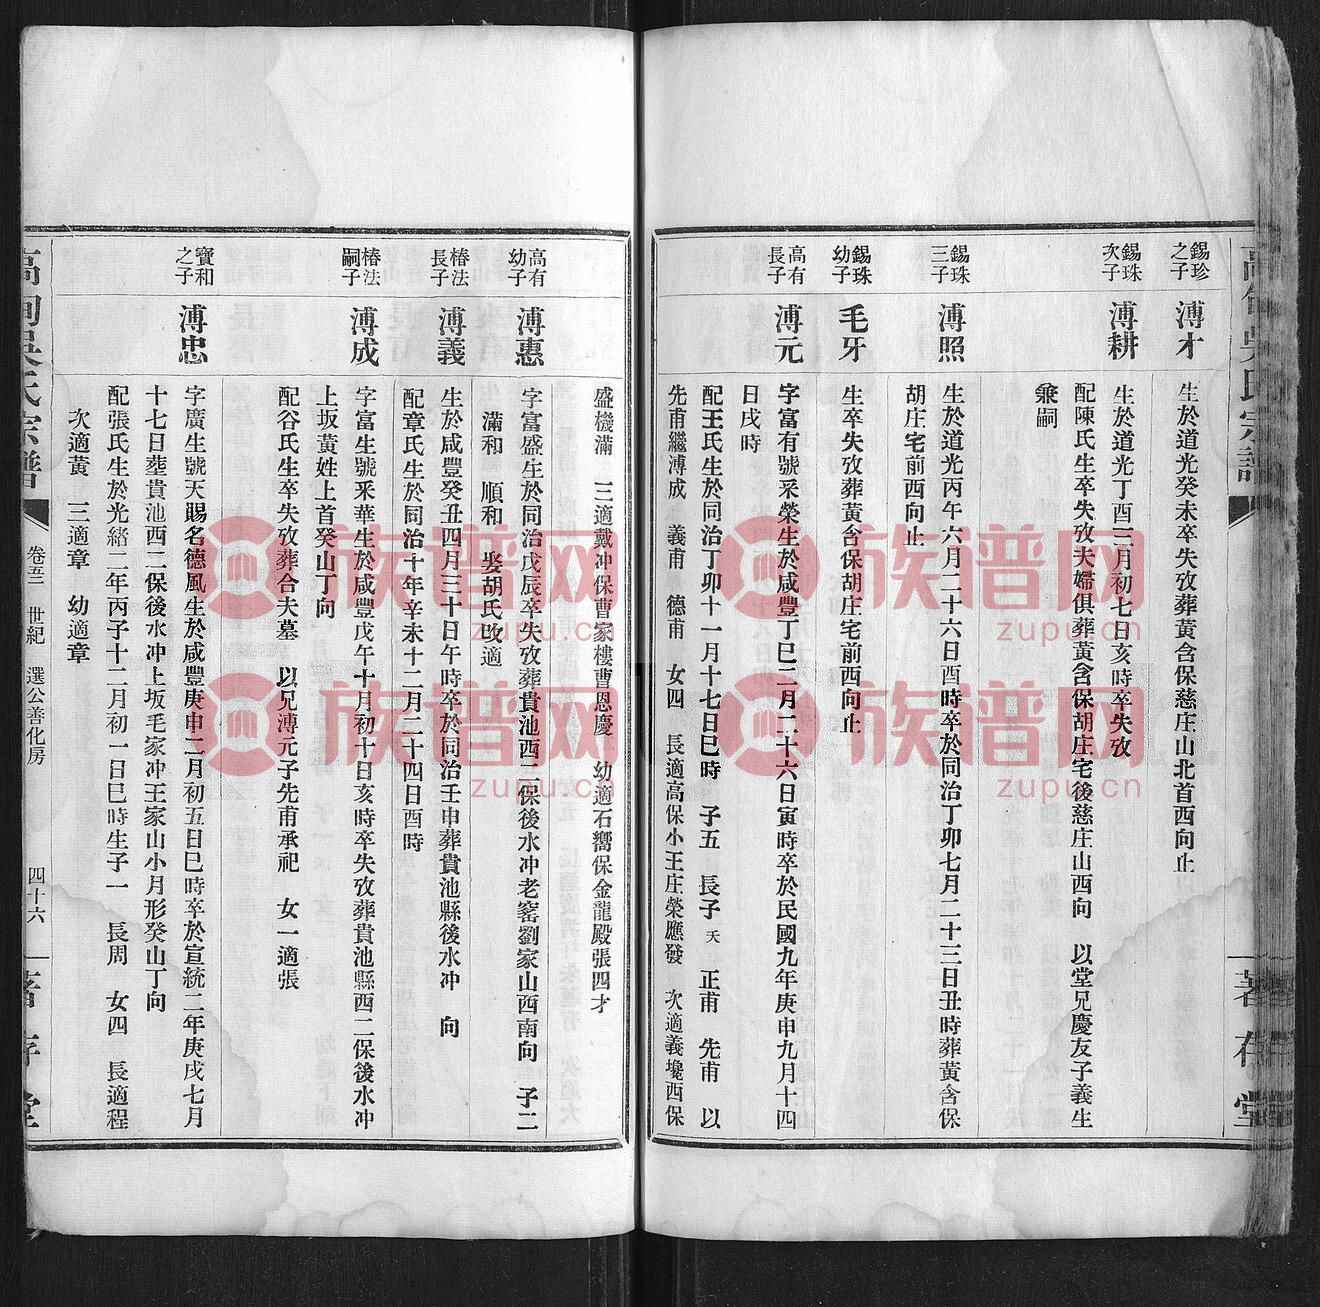 錫珍之子
溥才
生於道光癸未卒失攷葬黃含保慈庄山北首西向止
錫珠次子
溥耕
生於道光丁酉三月初七日亥時卒失攷
配陳氏生卒失攷夫婦俱葬黃含保胡庄宅後慈庄山西向 以堂兄慶友子義生
兼嗣
錫珠三子
溥照
生於道光丙午六月二十六日酉時卒於同治丁卯七月二十三日丑時葬黃含保
胡庄宅前西向止
錫珠幼子
毛牙
生卒失攷葬黃含保胡庄宅前西向止
高有長子
溥元
字富有號釆榮生於咸豐丁巳二月二十六日寅時卒於民國九年庚申九月十四
日戌時
配王氏生於同治丁卯十一月十七日巳時 子五 長子天 正甫 先甫 以
先甫繼溥成 義甫 德甫 女四 長適高保小王庄榮應發 次適義㙻西保
盛機滿 三適戴冲保曹家樓曹恩慶 幼適石嚮保金龍殿張四才
高有幼子
溥惠
字富盛生於同治戊辰卒失攷葬貴池西二保後水冲老窰劉家山西南向 子二
滿和 順和 娶胡氏改適
椿法長子
溥義
生於咸豐癸丑四月三十日午時卒於同治壬申葬貴池縣後水冲 向
配章氏生於同治十年辛未十二月二十四日酉時
椿法嗣子
溥成
字富生號釆華生於咸豐戊午十月初十日亥時卒失攷葬貴池縣西二保後水冲
上坂黃姓上首癸山丁向
配谷氏生卒失攷葬合夫墓 以兄溥元子先甫承祀 女一適張
寶和之子
溥忠
字廣生號天賜名德風生於咸豐庚申二月初五日巳時卒於宣統二年庚戌七月
十七日葬貴池西二保後水冲上坂毛家冲王家山小月形癸山丁向
配張氏生於光緒二年丙子十二月初一日巳時生子一 長周 女四 長適程
次適黃 三適章 幼適章
高甸吳氏宗譜
卷五二 世紀 選公善化房
四十六
著存堂
族谱网
zupu.cn
族谱网
zupu.cn
族谱网
zupu.cn
族谱网
zupu.cn